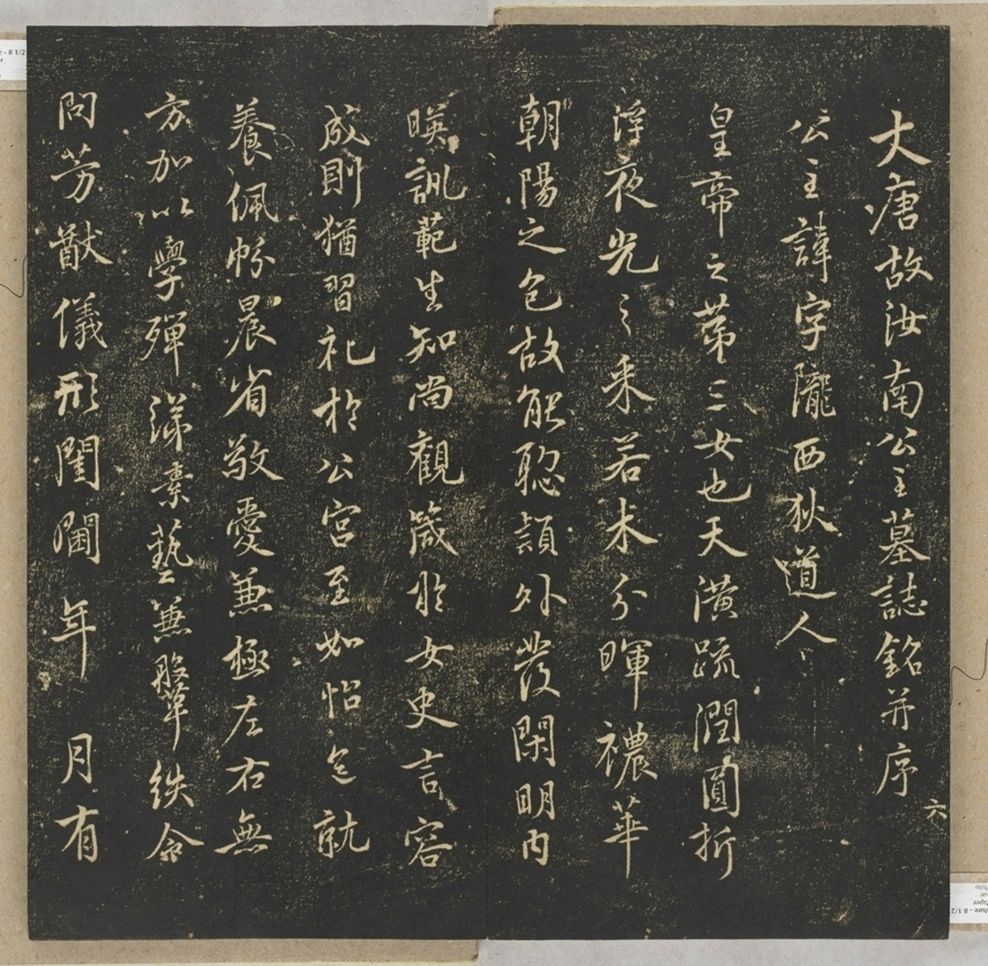 大唐故汝南公主墓誌銘并序
六
公主諱字隴西狄道人
皇帝之苐三女也天潢疏潤圓折
浮夜光之采若木分暉襛華
朝陽之色故能聡穎外發閑明内
暎訓範生知尚觀箴於女史言容
成則猶習礼於公宮至如怡色就
養佩帉晨省敬愛兼極左右無
方加以學殫綈素藝兼鞶紩令
問芳猷儀形閨閫年 月有